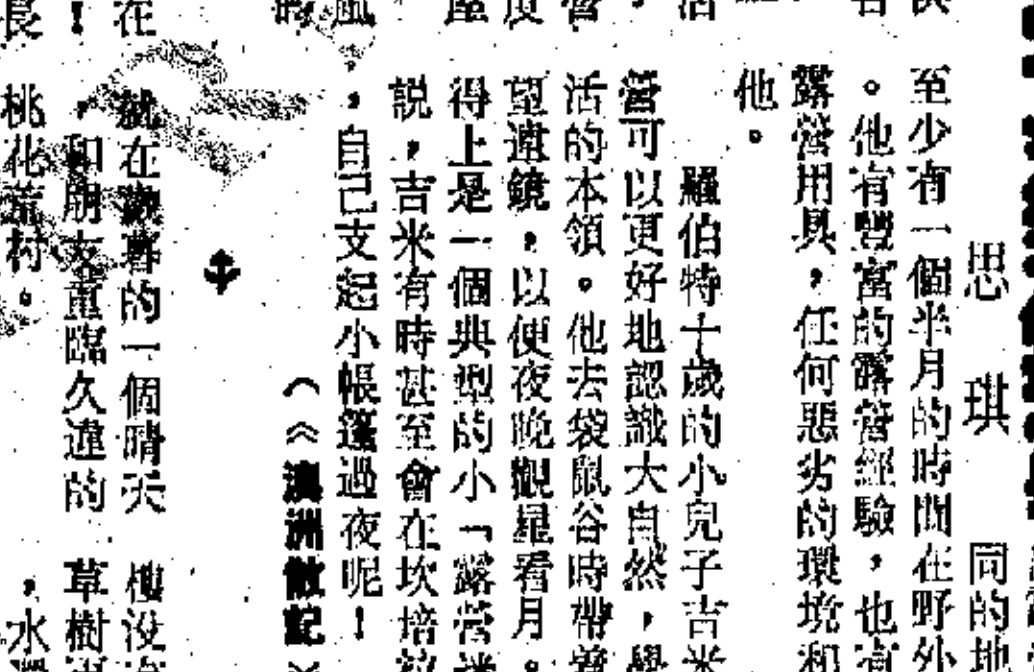 思琪　同的地
至少有一個半月的時間在野外
。他有豐富的露營經驗，也有
露營用具，任何惡劣的環境和
他。
羅伯特十歲的小兒子吉米
營可以更好地認識大自然，學
活的本領。他去袋鼠谷時帶着
望遠鏡，以便夜晚觀星看月。
得上是一個典型的小「露營迷
説，吉米有時甚至會在坎培拉
，自己支起小帳篷過夜呢！
（《澳洲散記》
就在歲暮的一個晴天　樓沒
，和朋友重臨久違的　草樹
桃花荒村。　，水